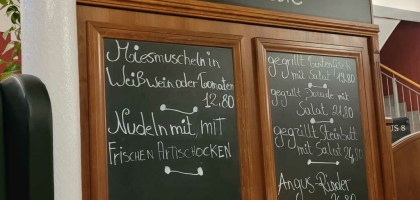 Miesmuscheln in
Weißwein oder Tomaten
12.80
Nudeln mit, MIT
FRISCHEN ARTISCHOCKEN
gegrillt Tintenfisch
mit Salat 19.80
gegrillt Dorade mit
Salat 21.80
gegrillt Steinbutt
mit Salat 26,80
Angus-Rinder